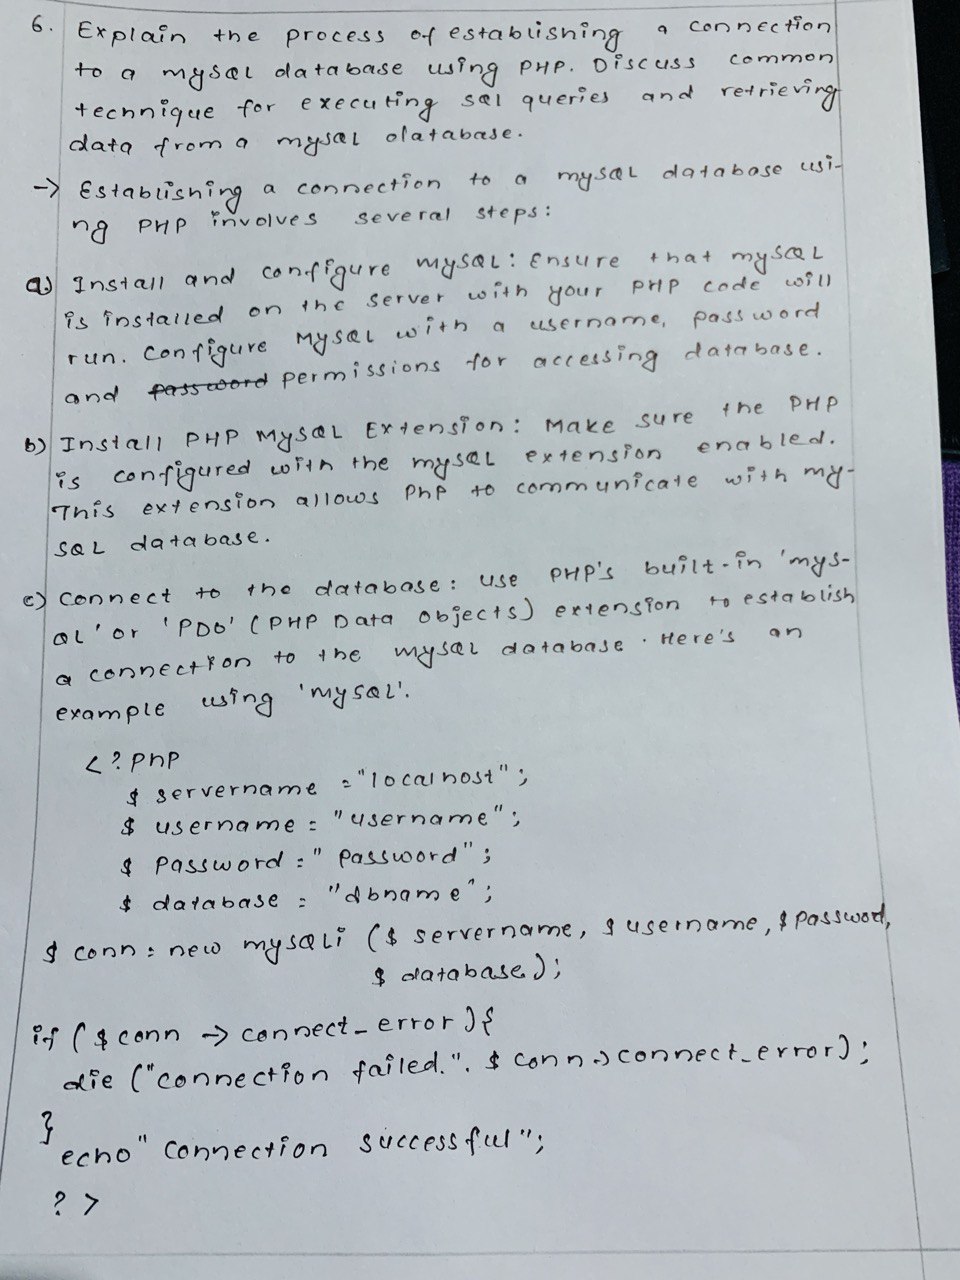 6. Explain the process of establishing a connection
to a mysQL database using PHP. Discuss common
technique for executing sql queries and retrieving
data from a mysQL database.
→ Establishing a connection to a mysQL database usi-
ng PHP involves several steps:
a) Install and configure mysQL: Ensure that mysQL
is installed on the server with your PHP code will
run. Configure MysQL with a username, password
and password permissions for accessing database.
b) Install PHP MysQL Extension: Make sure the PHP
is configured with the mysQL extension enabled.
This extension allows PhP to communicate with my-
SQL database.
c) Connect to the database: use PHP's built-in 'mys-
QL' or 'PDO' (PHP Data Objects) extension to establish
a connection to the mysQL database. Here's an
example using 'mysQL'.
<?php
$ servername = "localhost";
$ username = "username";
$ password = "password";
$ database = "dbname";
$ conn = new mysQLi ($ servername, $ username, $ password,
$ database);
if ($ conn -> connect_error){
die ("connection failed.". $ conn->connect_error);
}
echo "Connection successful";
? >